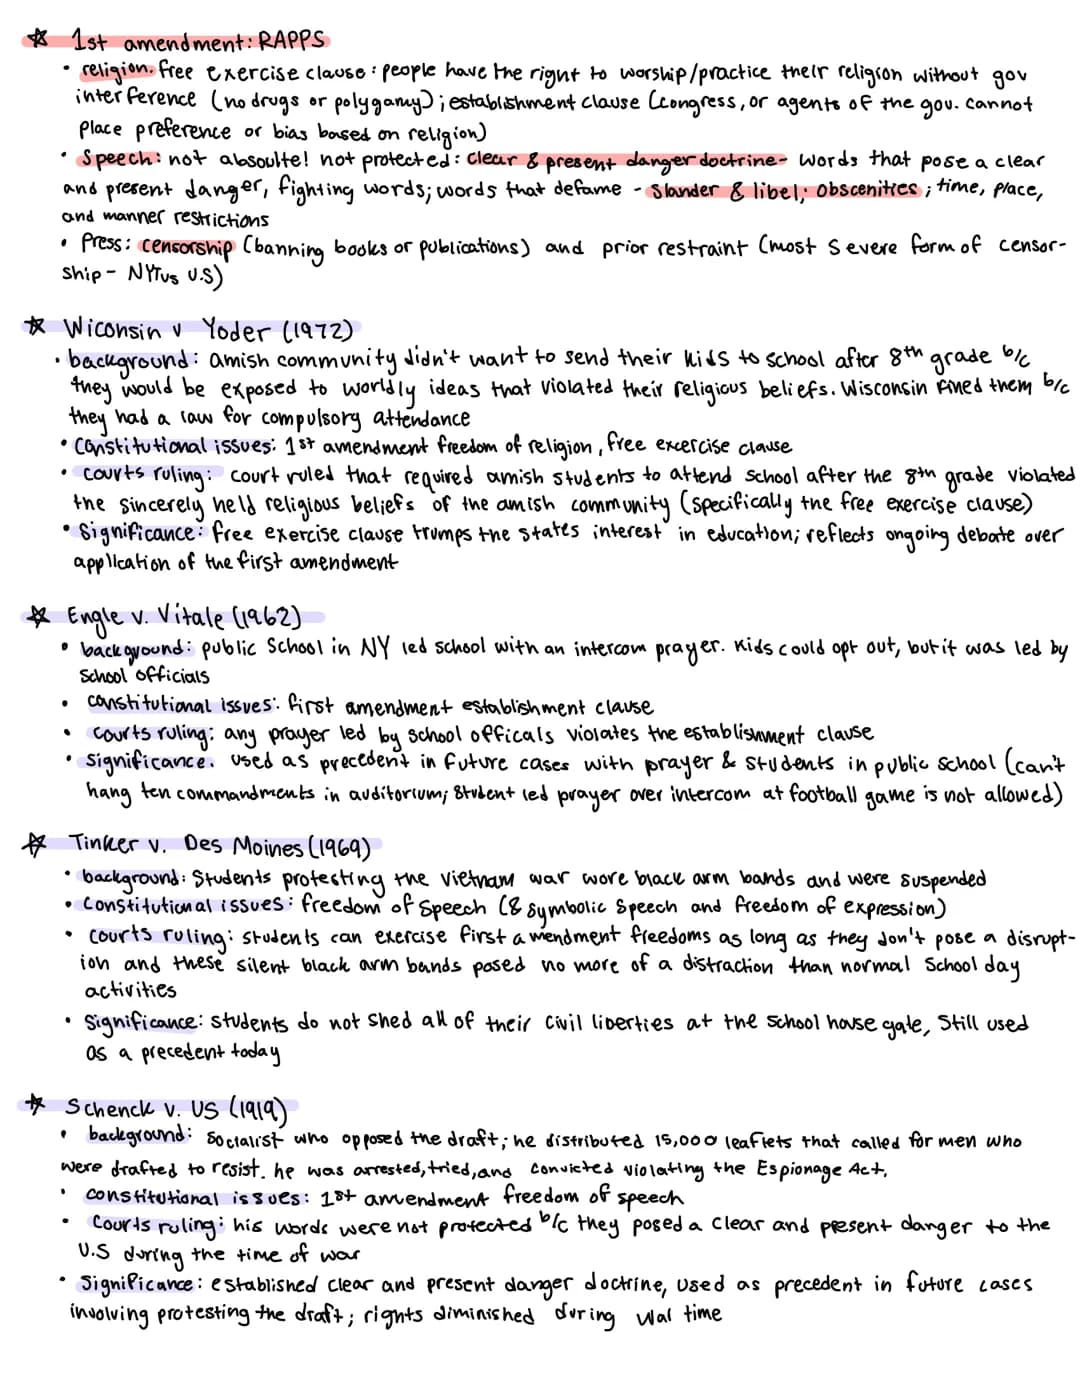 ☆ 1st amendment: RAPPS
• religion: free exercise clause: people have the right to worship/practice their religion without gov
interference (no drugs or polygamy); establishment clause (congress, or agents of the gov. cannot
place preference or bias based on religion)
• Speech: not absoulte! not protected: clear & present danger doctrine- words that pose a clear
and present danger, fighting words; words that defame - slander & libel; obscenities; time, place,
and manner restrictions
• Press: censorship (banning books or publications) and prior restraint (most severe form of censor-
ship - NYTvs U.S)
☆ Wiconsin v Yoder (1972)
• background: amish community didn't want to send their kids to school after 8th grade b/c
they would be exposed to worldly ideas that violated their religious beliefs. Wisconsin fined them b/c
they had a law for compulsory attendance
• Constitutional issues: 1st amendment freedom of religion, free excercise clause
• courts ruling: court ruled that required amish students to attend school after the 8th grade violated
the sincerely held religious beliefs of the amish community (specifically the free exercise clause)
• Significance: free exercise clause trumps the states interest in education; reflects ongoing debate over
application of the first amendment
☆ Engle v. Vitale (1962)
• background: public School in NY led school with an intercom prayer. Kids could opt out, but it was led by
school officials
• constitutional issues: first amendment establishment clause
• courts ruling: any prayer led by school officals violates the establishment clause
• significance: used as precedent in future cases with prayer & students in public school (can't
hang ten commandments in auditorium; student led prayer over intercom at football game is not allowed)
☆ Tinker v. Des Moines (1969)
• background: Students protesting the vietnam war wore black arm bands and were suspended
• Constitutional issues: freedom of speech (& symbolic speech and freedom of expression)
• courts ruling: students can exercise first amendment freedoms as long as they don't pose a disrupt-
ion and these silent black arm bands posed no more of a distraction than normal school day
activities
• Significance: students do not shed all of their civil liberties at the school house gate, Still used
as a precedent today
☆ Schenck v. US (1919)
• background: socialist who opposed the draft; he distributed 15,000 leaflets that called for men who
were drafted to resist. he was arrested, tried, and convicted violating the Espionage Act.
• constitutional issues: 1st amendment freedom of speech
• Courts ruling: his words were not protected b/c they posed a clear and present danger to the
U.S during the time of war
• significance: established clear and present danger doctrine, used as precedent in future cases
involving protesting the draft; rights diminished during war time